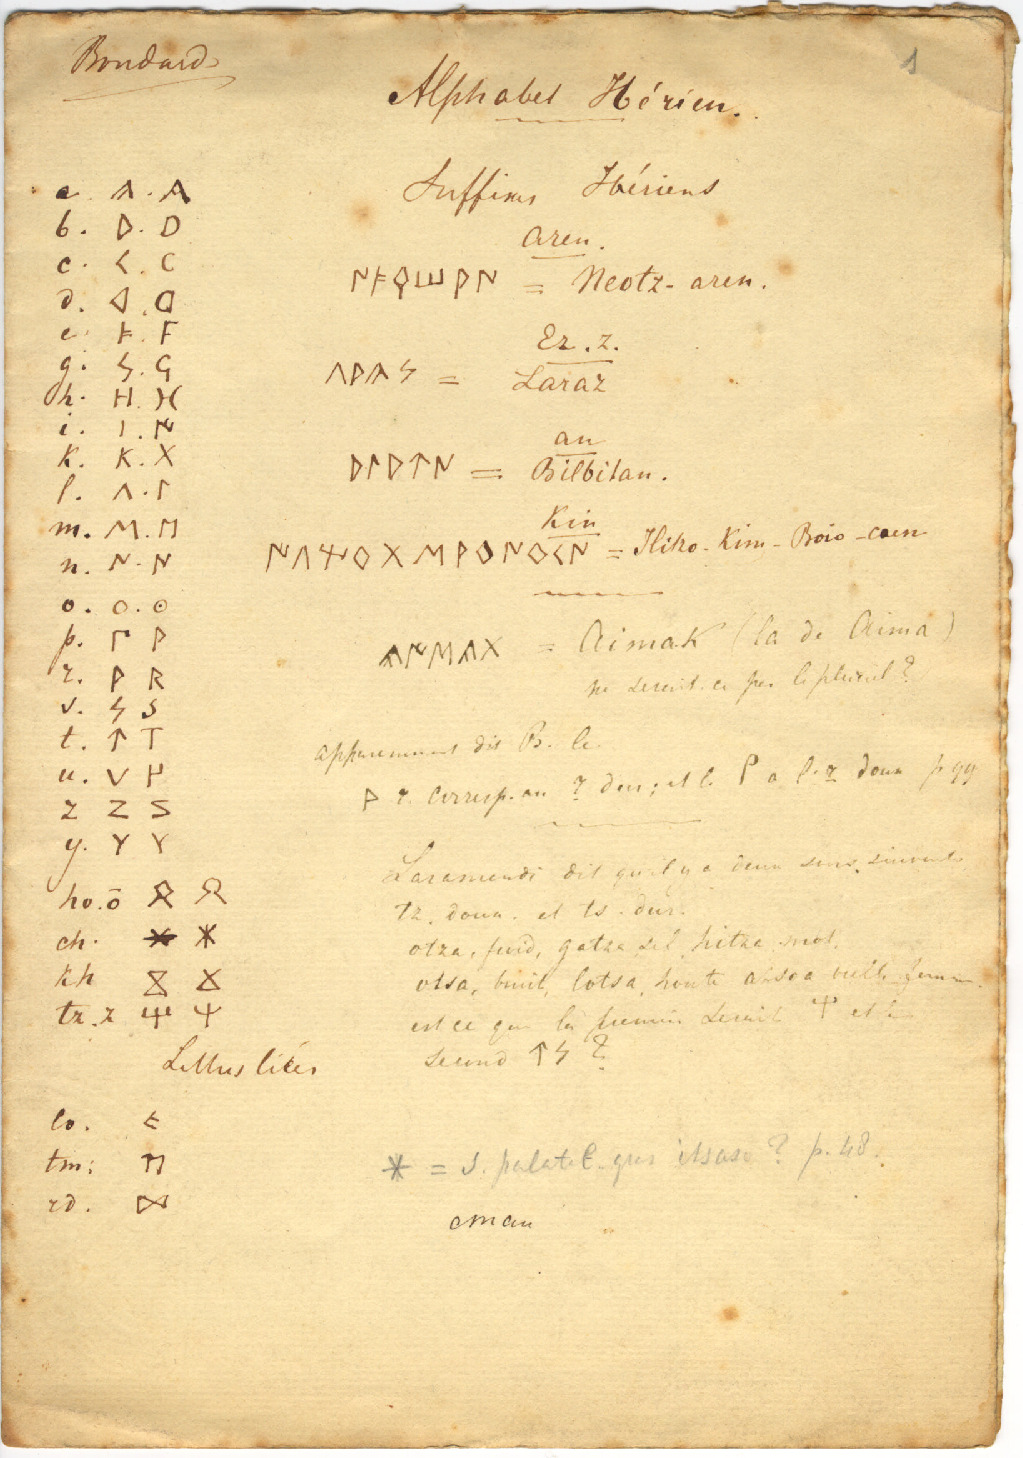 Boudard
1
Alphabet Ibérien.
Suffixes Ibériens
a. 𐌀 . A
b. D . D
c. < . C
d. ◁ .
e. F . F
g. Ϟ . G
h. H . H
i. I . 𐌍
k. K . X
l. Λ . Γ
m. M . 𐌼
n. N . N
o. O . ⊙
p. Γ P
r. P R
s. Ϟ S
t. ↑ T
u. V
z Z Σ
y. Y Y
ho. ō
ch. ✳ ✳
kh
tz. z Ψ Ψ
Lettres liées
lo.
tm.
rd. ⋈
aren.
= Neotz-aren.
Ez. z.
= Laraz
an
= Bilbilan.
Kin
= Iliko-Kim-Boio-coen
= Aimak (la de Aima)
ne serait-ce pas le pluriel ?
apparemment dit B. le
P r. corresp. au r dur ; et le Γ a l. r doux p 99
Laramendi dit qu'il y a deux sons
tz. doux. et ts. dur.
otza, froid, gatza sel, hitza mot.
otsa, bruit, lotsa, honte
est ce que le premier serait Ψ et le
second ↑Ϟ ?
✳ = S. palatal itsaso ? p. 48.
eman